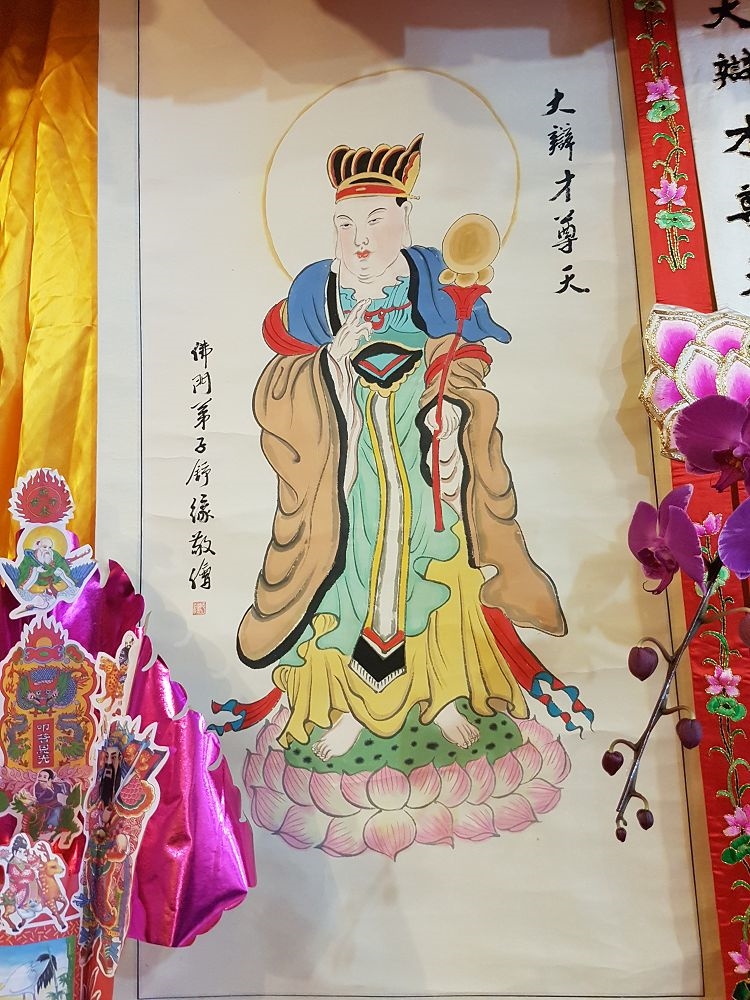 大辯才尊
大辯才尊天
佛門弟子舒緣敬繪
叩答恩光